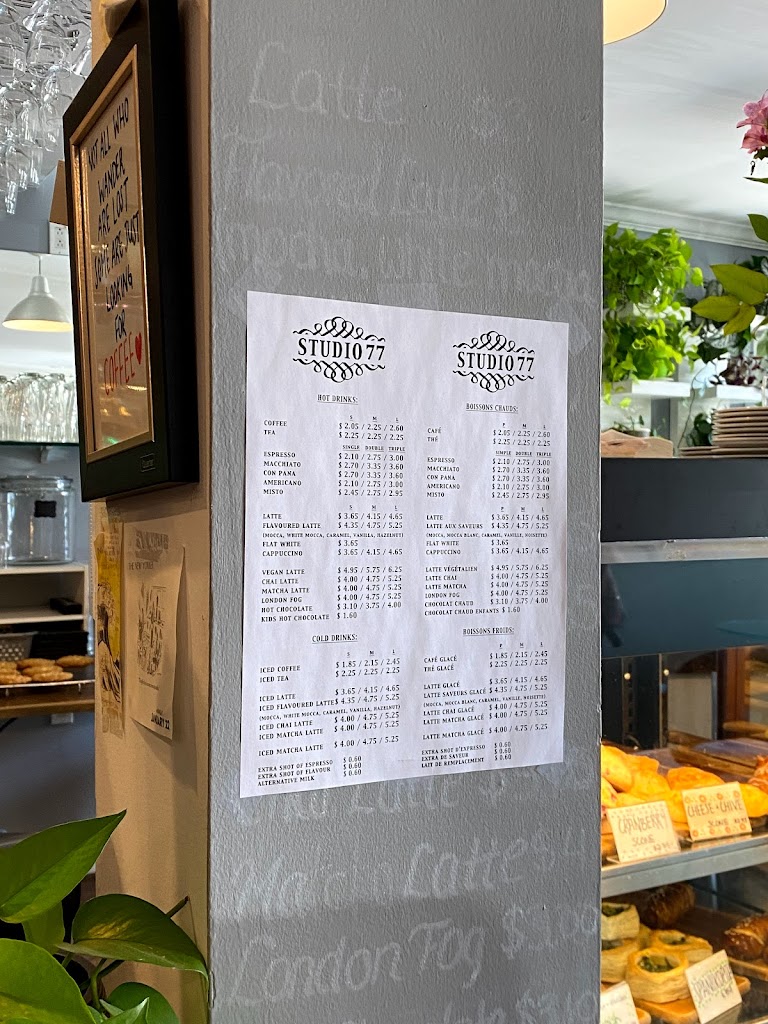 Latte
Flavoured Latte $
NOT ALL WHO
WANDER
ARE LOST
SOME ARE JUST
LOOKING
FOR
COFFEE
THE NEW YORKER
JANUARY 22
STUDIO 77
HOT DRINKS:
S M L
COFFEE $ 2.05 / 2.25 / 2.60
TEA $ 2.25 / 2.25 / 2.25
SINGLE DOUBLE TRIPLE
ESPRESSO $ 2.10 / 2.75 / 3.00
MACCHIATO $ 2.70 / 3.35 / 3.60
CON PANA $ 2.70 / 3.35 / 3.60
AMERICANO $ 2.10 / 2.75 / 3.00
MISTO $ 2.45 / 2.75 / 2.95
S M L
LATTE $ 3.65 / 4.15 / 4.65
FLAVOURED LATTE $ 4.35 / 4.75 / 5.25
(MOCCA, WHITE MOCCA, CARAMEL, VANILLA, HAZELNUT)
FLAT WHITE $ 3.65
CAPPUCCINO $ 3.65 / 4.15 / 4.65
VEGAN LATTE $ 4.95 / 5.75 / 6.25
CHAI LATTE $ 4.00 / 4.75 / 5.25
MATCHA LATTE $ 4.00 / 4.75 / 5.25
LONDON FOG $ 4.00 / 4.75 / 5.25
HOT CHOCOLATE $ 3.10 / 3.75 / 4.00
KIDS HOT CHOCOLATE $ 1.60
COLD DRINKS:
S M L
ICED COFFEE $ 1.85 / 2.15 / 2.45
ICED TEA $ 2.25 / 2.25 / 2.25
ICED LATTE $ 3.65 / 4.15 / 4.65
ICED FLAVOURED LATTE $ 4.35 / 4.75 / 5.25
(MOCCA, WHITE MOCCA, CARAMEL, VANILLA, HAZELNUT)
ICED CHAI LATTE $ 4.00 / 4.75 / 5.25
ICED MATCHA LATTE $ 4.00 / 4.75 / 5.25
ICED MATCHA LATTE $ 4.00 / 4.75 / 5.25
EXTRA SHOT OF ESPRESSO $ 0.60
EXTRA SHOT OF FLAVOUR $ 0.60
ALTERNATIVE MILK $ 0.60
STUDIO 77
BOISSONS CHAUDS:
P M L
CAFÉ $ 2.05 / 2.25 / 2.60
THÉ $ 2.25 / 2.25 / 2.25
SIMPLE DOUBLE TRIPLE
ESPRESSO $ 2.10 / 2.75 / 3.00
MACCHIATO $ 2.70 / 3.35 / 3.60
CON PANA $ 2.70 / 3.35 / 3.60
AMERICANO $ 2.10 / 2.75 / 3.00
MISTO $ 2.45 / 2.75 / 2.95
P M L
LATTE $ 3.65 / 4.15 / 4.65
LATTE AUX SAVEURS $ 4.35 / 4.75 / 5.25
(MOCCA, MOCCA BLANC, CARAMEL, VANILLE, NOISETTE)
FLAT WHITE $ 3.65
CAPPUCCINO $ 3.65 / 4.15 / 4.65
LATTE VÉGÉTALIEN $ 4.95 / 5.75 / 6.25
LATTE CHAI $ 4.00 / 4.75 / 5.25
LATTE MATCHA $ 4.00 / 4.75 / 5.25
LONDON FOG $ 4.00 / 4.75 / 5.25
CHOCOLAT CHAUD $ 3.10 / 3.75 / 4.00
CHOCOLAT CHAUD ENFANTS $ 1.60
BOISSONS FROIDS:
P M L
CAFÉ GLACÉ $ 1.85 / 2.15 / 2.45
THÉ GLACÉ $ 2.25 / 2.25 / 2.25
LATTE GLACÉ $ 3.65 / 4.15 / 4.65
LATTE SAVEURS GLACÉ $ 4.35 / 4.75 / 5.25
(MOCCA, MOCCA BLANC, CARAMEL, VANILLE, NOISETTE)
LATTE CHAI GLACÉ $ 4.00 / 4.75 / 5.25
LATTE MATCHA GLACÉ $ 4.00 / 4.75 / 5.25
LATTE MATCHA GLACÉ $ 4.00 / 4.75 / 5.25
EXTRA SHOT D'ESPRESSO $ 0.60
EXTRA DE SAVEUR $ 0.60
LAIT DE REMPLACEMENT $ 0.60
Latte
London Fog
CRANBERRY
SCONE
CHEESE + CHIVE
SCONE